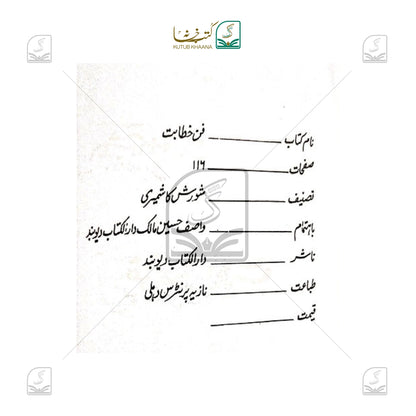 کتب خانہ
KUTUB KHAANA
نام کتاب ــــــــــ فن خطابت
صفحات ــــــــــ ۱۱۶
تصنیف ــــــــــ شورش کاشمیری
باہتمام ــــــــــ واصف حسین مالک دارالکتاب دیوبند
ناشر ــــــــــ دارالکتاب دیوبند
طباعت ــــــــــ نازیہ پرنٹرس دہلی
قیمت ــــــــــ